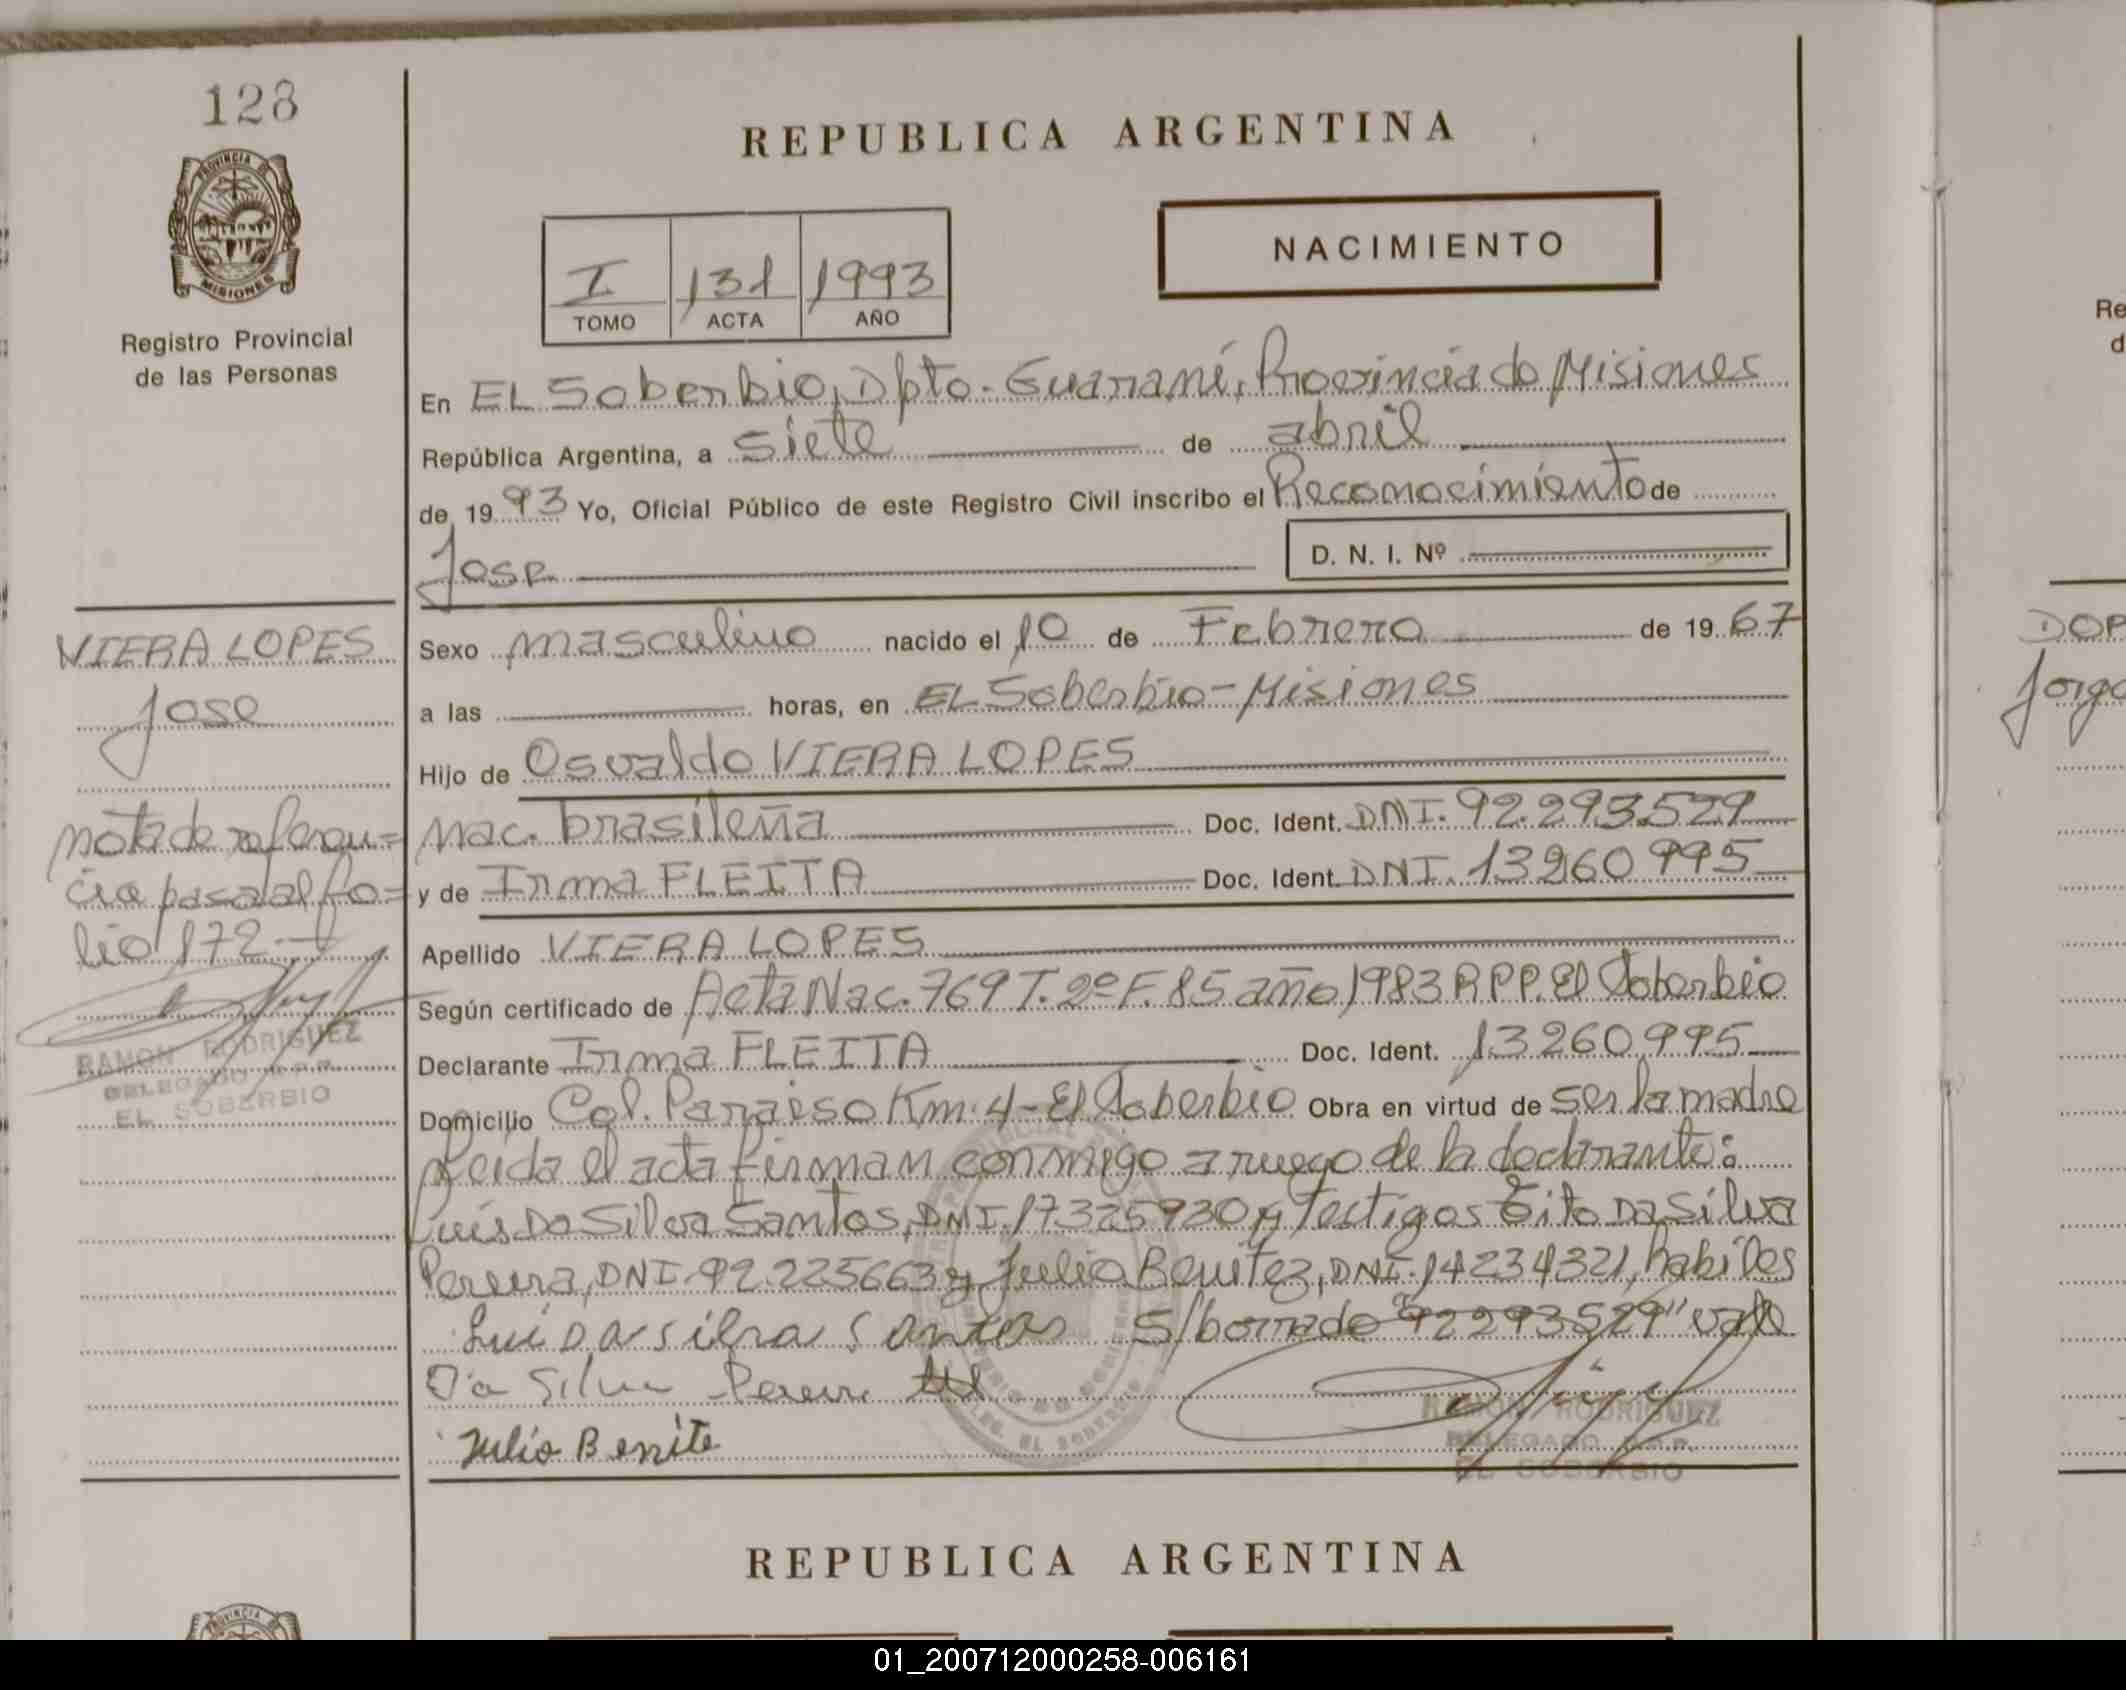 128
PROVINCIA DE
MISIONES
Registro Provincial
de las Personas
REPUBLICA ARGENTINA
NACIMIENTO
I 131 1993
TOMO ACTA AÑO
En EL Soberbio, Dpto. Guarani, Provincia de Misiones
República Argentina, a siete de abril
de 19 93 Yo, Oficial Público de este Registro Civil inscribo el Reconocimiento de
Jose D. N. I. Nº
Sexo masculino nacido el 10 de Febrero de 19 67
a las horas, en EL Soberbio - Misiones
Hijo de Osvaldo VIERA LOPES
nac. brasileña Doc. Ident. DNI. 92.293.529
y de Irma FLEITA Doc. Ident. DNI. 13260995
Apellido VIERA LOPES
Según certificado de Acta Nac. 769 T. 2º F. 85 año 1983 R.P.P. El Soberbio
Declarante Irma FLEITA Doc. Ident. 13260995
Domicilio Col. Paraiso Km. 4 - El Soberbio Obra en virtud de ser la madre
Leida el acta firman conmigo a ruego de la declarante:
Luis Da Silva Santos, DNI. 17325930 y testigos Tito Da Silva
Pereira, DNI. 92.225663 y Julio Benitez, DNI. 14234321, habiles
Lui Da silva Santos S/borrado "92293529" vale
Da Silva Pereira
Julio Benite
RAMON RODRIGUEZ
DELEGADO R.P.P.
EL SOBERBIO
VIERA LOPES
Jose
nota de referen=
cia pasa al fo=
lio 172.
RAMON RODRIGUEZ
DELEGADO R.P.P.
EL SOBERBIO
REPUBLICA ARGENTINA
PROVINCIA DE
Re
d
DOP
Jorge
01_200712000258-006161